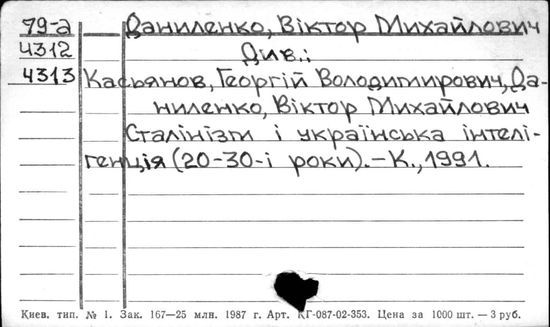 79-а Даниленко, Віктор Михайлович
4312 Див.:
4313 Касьянов, Георгій Володимирович, Да-
ниленко, Віктор Михайлович
Сталінізм і українська інтелі-
генція (20-30-і роки). – К., 1991.
Киев. тип. № 1. Зак. 167—25 млн. 1987 г. Арт. КГ-087-02-353. Цена за 1000 шт. — 3 руб.